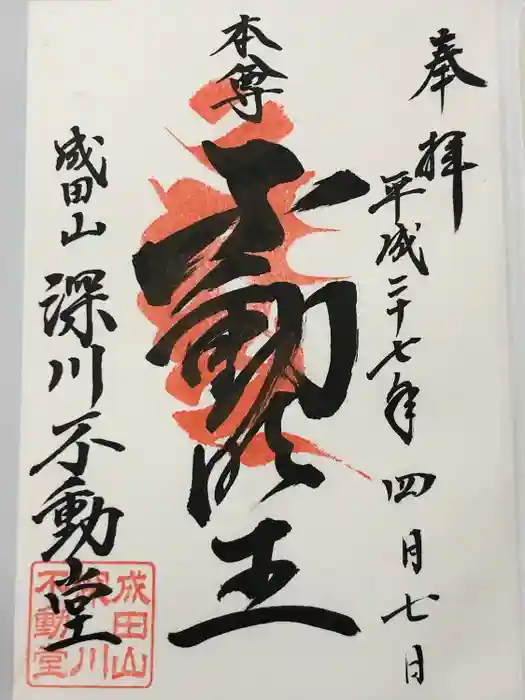 奉拝
平成二十七年四月七日
本尊
不動明王
成田山
深川不動堂
成田山
深川
不動堂